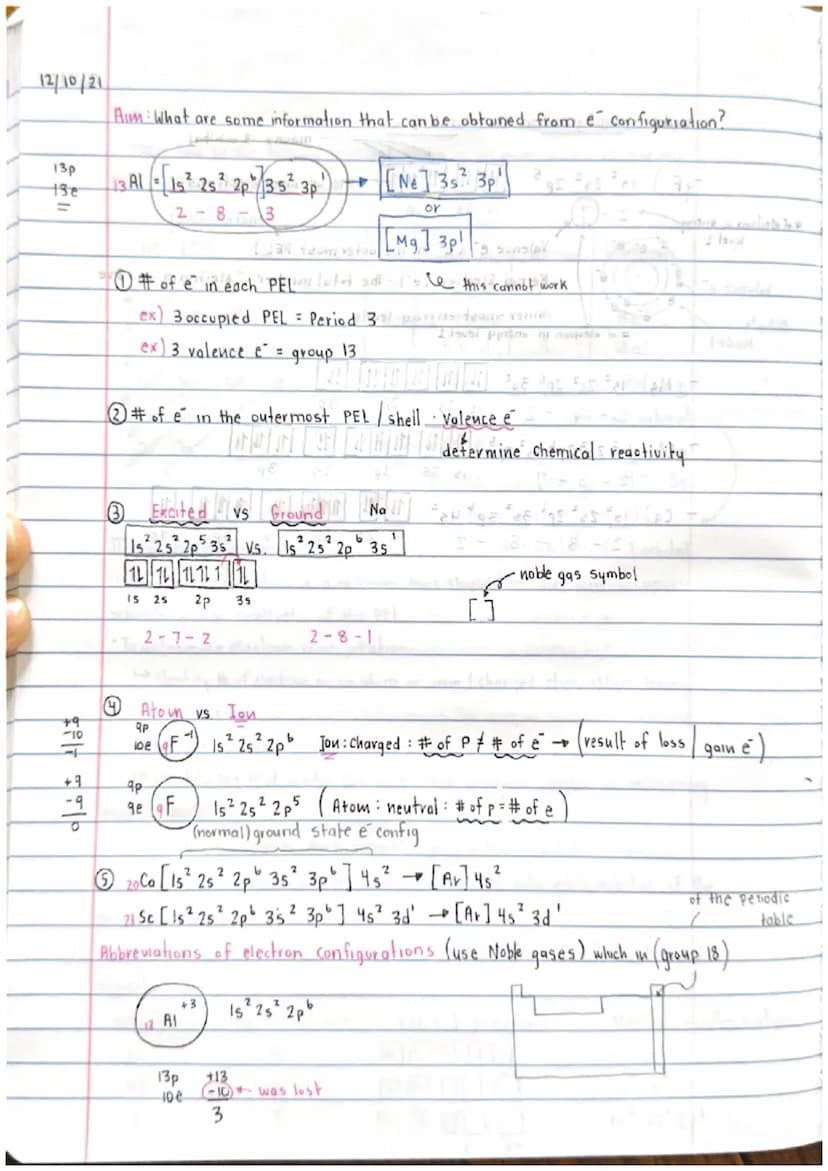 12/10/21
Aim: What are some information that can be obtained from e⁻ configuration?
13p
13e
=
₁₃Al = [1s² 2s² 2p⁶] 3s² 3p¹ → [Ne] 3s² 3p¹
2 - 8 - 3
or
[Mg] 3p¹
this cannot work
① # of e⁻ in each PEL
ex) 3 occupied PEL = Period 3
ex) 3 valence e⁻ = group 13
② # of e⁻ in the outermost PEL / shell · valence e⁻
determine chemical reactivity
③ Excited vs Ground Na
1s² 2s² 2p⁵ 3s² vs. 1s² 2s² 2p⁶ 3s¹
1↓ 1↓ 1↓ 1↓ 1 1↓
1s 2s 2p 3s
noble gas symbol
[ ]
2-7-2 2-8-1
④ Atom vs Ion
+9
-10
-1
9p
10e ₉F⁻¹ 1s² 2s² 2p⁶ Ion: charged: # of P ≠ # of e⁻ → (result of loss / gain e⁻)
+9
-9
0
9p
9e ₉F 1s² 2s² 2p⁵ (Atom: neutral: # of p = # of e)
(normal) ground state e⁻ config
⑤ ₂₀Ca [1s² 2s² 2p⁶ 3s² 3p⁶] 4s² → [Ar] 4s²
₂₁Sc [1s² 2s² 2p⁶ 3s² 3p⁶] 4s² 3d¹ → [Ar] 4s² 3d¹
of the periodic
table
Abbreviations of electron configurations (use Noble gases) which in (group 18)
Al⁺³ 1s² 2s² 2p⁶
13p +13
10e -10 ← was lost
3